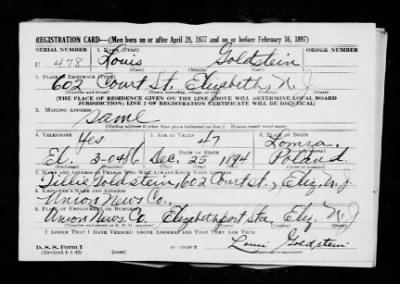 REGISTRATION CARD—(Men born on or after April 28, 1877 and on or before February 16, 1897)
SERIAL NUMBER 1. NAME (Print) ORDER NUMBER
U 478 Louis Goldstein
2. PLACE OF RESIDENCE (Print)
602 Court St. Elizabeth, N.J.
[THE PLACE OF RESIDENCE GIVEN ON THE LINE ABOVE WILL DETERMINE LOCAL BOARD
JURISDICTION; LINE 2 OF REGISTRATION CERTIFICATE WILL BE IDENTICAL]
3. MAILING ADDRESS
Same
[Mailing address if other than place indicated on line 2. If same insert word same]
4. TELEPHONE 5. AGE IN YEARS 6. PLACE OF BIRTH
Yes 47 Lomza
DATE OF BIRTH
El. 3-0486 Dec. 25 1894 Poland
7. NAME AND ADDRESS OF PERSON WHO WILL ALWAYS KNOW YOUR ADDRESS
Tillie Goldstein, 602 Court St., Eliz. N.J.
8. EMPLOYER'S NAME AND ADDRESS
Union News Co.,
9. PLACE OF EMPLOYMENT OR BUSINESS
Union News Co. Elizabethport Sta, Eliz. N.J
I AFFIRM THAT I HAVE VERIFIED ABOVE ANSWERS AND THAT THEY ARE TRUE.
D. S. S. Form 1
(Revised 4-1-42) Louis Goldstein